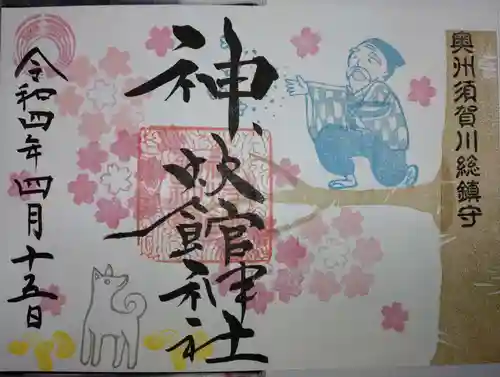 奥州須賀川総鎮守
神炊館神社
令和四年四月十五日